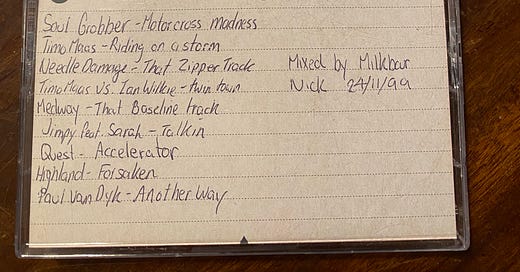 Soul Grabber - Motorcross madness
Timo Maas - Riding on a storm
Needle Damage - That Zipper Track
Timo Maas VS. Ian Wilkie - twin town
Medway - That Baseline track
Jimpy Feat. Sarah - Talkin
Quest - Accelerator
Highland - Forsaken
Paul Van Dyk - Another Way
Mixed by Milkbar
Nick 24/11/99